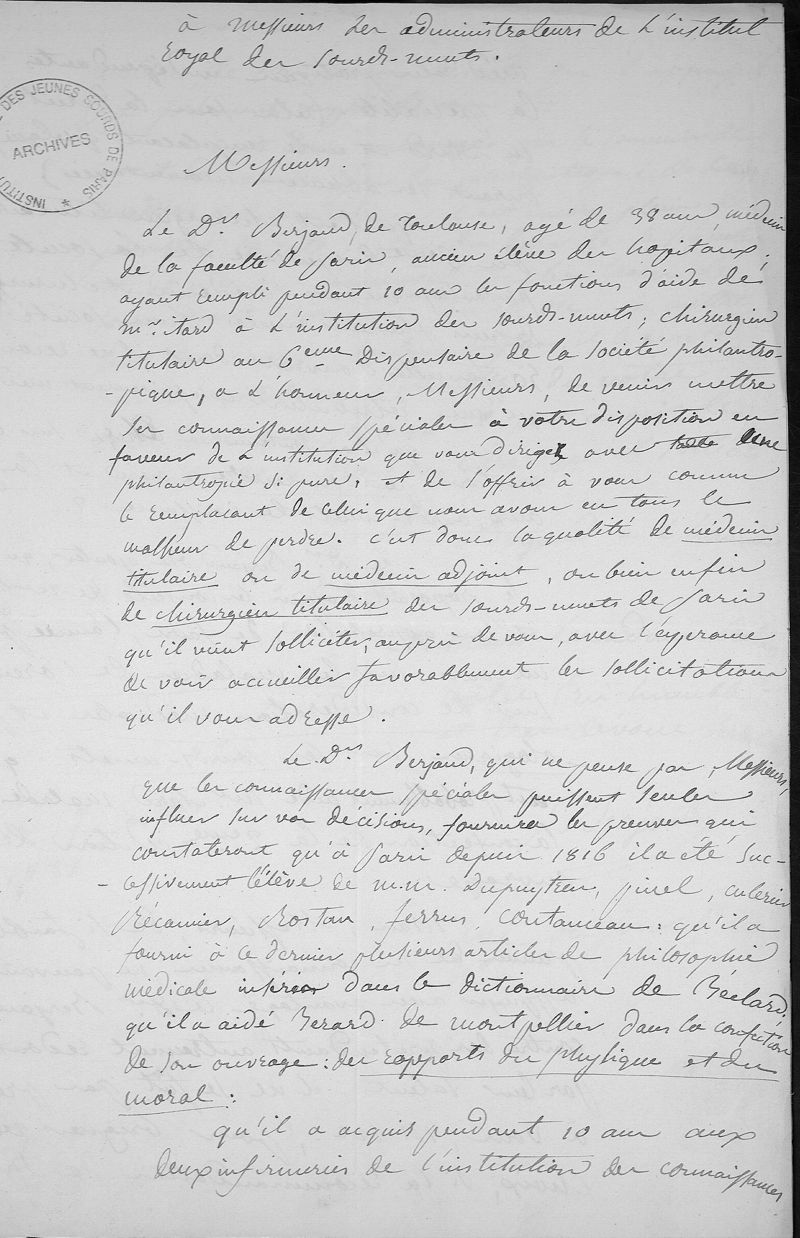 à Messieurs les administrateurs de L'institut
royal des sourds-muets.
INSTITUT DES JEUNES SOURDS DE PARIS
ARCHIVES
Messieurs.
Le Dr Berjaud, de Toulouse, agé de 38 ans, médecin
de la faculté de Paris, ancien élève des hopitaux,
ayant rempli pendant 10 ans les fonctions d'aide de
mr. itard à L'institution des sourds-muets; chirurgien
titulaire au 6eme Dispensaire de la société philantro-
-pique, a L'honneur, Messieurs, de venir mettre
ses connaissances spéciales à votre disposition en
faveur de L'institution que vous dirigez avec une
philantropie si pure, et de s'offrir à vous comme
le remplaçant de celui que nous avons eu tous le
malheur de perdre. c'est donc la qualité de médecin
titulaire ou de médecin adjoint, ou bien enfin
de chirurgien titulaire des sourds-muets de Paris
qu'il vient solliciter, auprès de vous, avec l'espérance
de voir accueillir favorablement les sollicitations
qu'il vous adresse.
Le Dr Berjaud, qui ne pense pas, Messieurs,
que les connaissances spéciales puissent seules
influer sur vos décisions, fournira les preuves qui
constateront qu'à Paris depuis 1816 il a été suc-
-cessivement l'élève de m.m. Dupuytren, pinel, culerier
Récamier, Rostan, ferrus, Coutanceau: qu'il a
fourni à ce dernier plusieurs articles de philosophie
médicale insérés dans le dictionnaire de Béclard;
qu'il a aidé Berard de montpellier dans la confection
de son ouvrage: des rapports du physique et du
moral:
qu'il a acquis pendant 10 ans aux
deux infirmeries de l'institution des connaissances